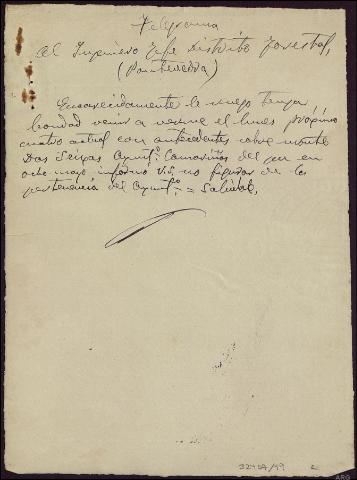 Telegrama
Al Ingeniero Jefe Distrito Forestal,
(Pontevedra)
Encarecidamente le ruego tenga
bondad venir a verme el lunes próximo
cuatro actual con antecedentes sobre monte
Dos Seixas Ayunt.º Camariñas del que en
ocho mayo informó V.S. no figurar de la
pertenencia del Ayunt.º = Salúdale,
32454/49
ARG